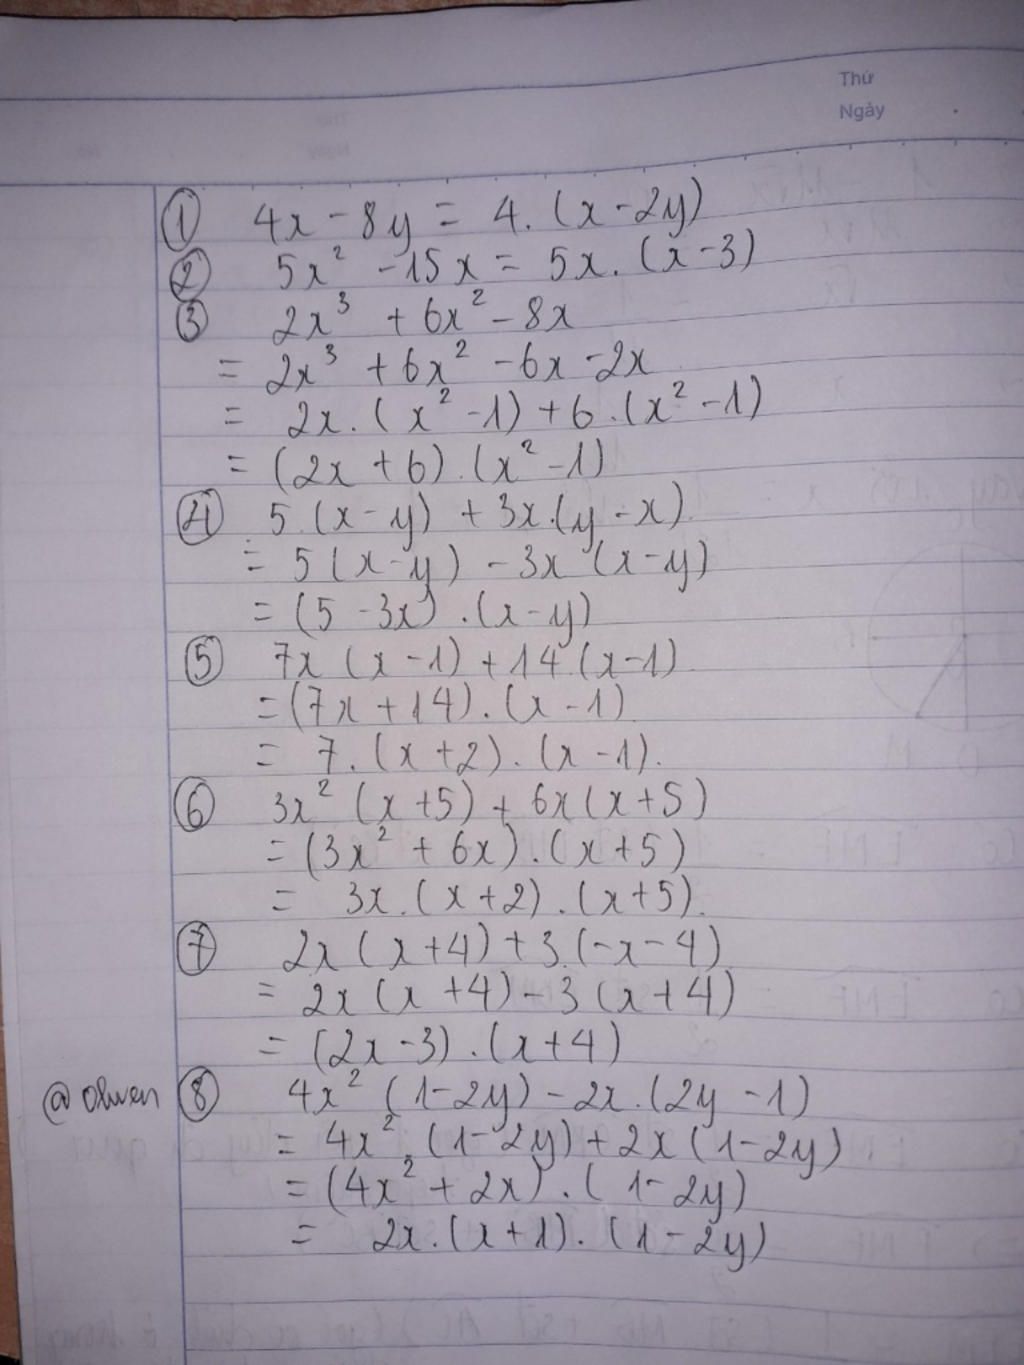 Thứ
Ngày
① 4x - 8y = 4. (x - 2y)
② 5x² - 15x = 5x. (x - 3)
③ 2x³ + 6x² - 8x
= 2x³ + 6x² - 6x - 2x
= 2x. (x² - 1) + 6. (x² - 1)
= (2x + 6). (x² - 1)
④ 5.(x - y) + 3x.(y - x)
= 5(x - y) - 3x (x - y)
= (5 - 3x).(x - y)
⑤ 7x (x - 1) + 14.(x - 1)
= (7x + 14). (x - 1)
= 7. (x + 2). (x - 1).
⑥ 3x² (x + 5) + 6x (x + 5)
= (3x² + 6x). (x + 5)
= 3x. (x + 2). (x + 5).
⑦ 2x (x + 4) + 3.(-x - 4)
= 2x (x + 4) - 3 (x + 4)
= (2x - 3). (x + 4)
⑧ 4x² (1 - 2y) - 2x. (2y - 1)
= 4x². (1 - 2y) + 2x (1 - 2y)
= (4x² + 2x). (1 - 2y)
= 2x. (x + 1). (1 - 2y)